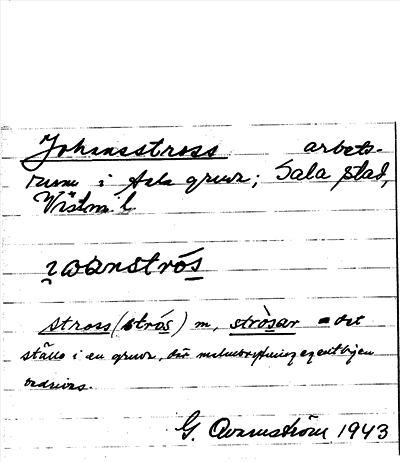 Johansstross arbets-
rum i Sala gruva; Sala stad,
Västm. l.
stross (strós) m, strósar = det
ställe i en gruva, där malmbrytning egentligen
bedrives.
G. Avamström 1943